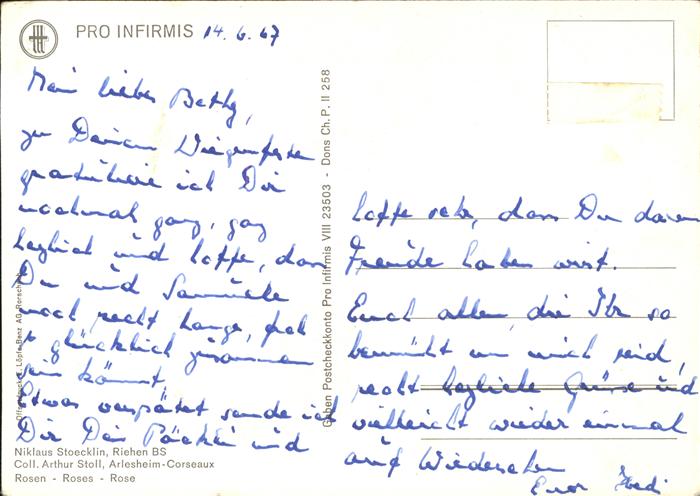 PRO INFIRMIS 14. 6. 67
Mein liebes Bethy,
zu Deinem Wiegenfeste
gratuliere ich Dir
nochmal ganz, ganz
herzlich und hoffe, dass
Du und Samuele
noch recht lange, froh
+ glücklich zusammen
sein könnt.
Etwas verspätet sende ich
Dir Dein Päckli und
Niklaus Stoecklin, Riehen BS
Coll. Arthur Stoll, Arlesheim-Corseaux
Rosen - Roses - Rose
Offsetdruck E. Löpfe-Benz AG, Rorschach
Gaben Postcheckkonto Pro Infirmis VIII 23503 - Dons Ch. P. II 258
hoffe sehr, dass Du daran
Freude haben wirst.
Euch allen, die Ihr so
bemüht um mich seid,
recht herzliche Grüsse und
vielleicht wieder einmal
auf Wiedersehen
Euer Hedi